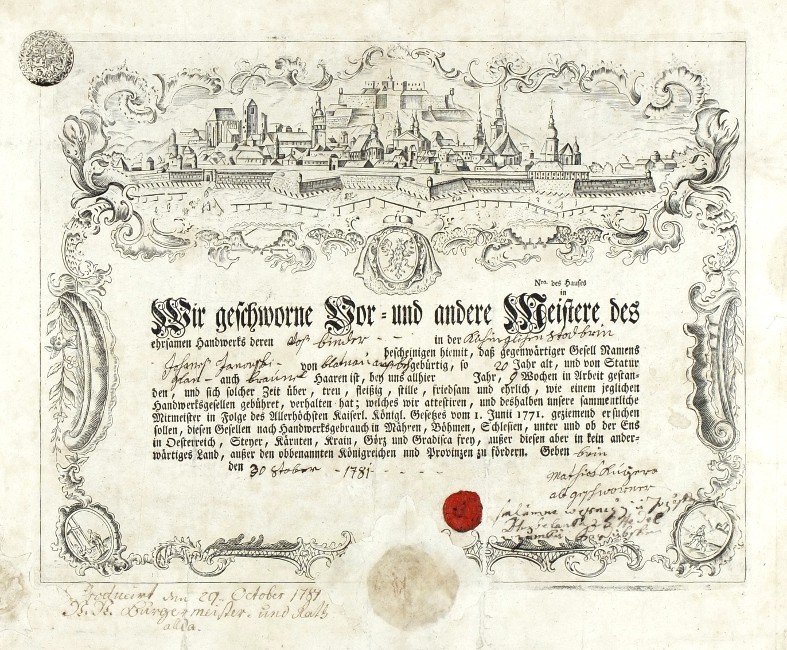 Nro. des Hauses
in
Wir geschworne Vor- und andere Meistere des
ehrsamen Handwerks deren binder - - in der Königlichen stadt brin
bescheinigen hiemit, daß gegenwärtiger Gesell Namens
Johannes von gebürtig, so 20 Jahr alt, und von Statur
auch brauner Haaren ist, bey uns allhier Jahr, 9 Wochen in Arbeit gestan-
den, und sich solcher Zeit über, treu, fleißig, stille, friedsam und ehrlich, wie einem jeglichen
Handwerksgesellen gebühret, verhalten hat; welches wir attestiren, und deshalben unsere sammentliche
Mitmeister in Folge des Allerhöchsten Kaiserl. Königl. Gesetzes vom 1. Junii 1771. geziemend ersuchen
sollen, diesen Gesellen nach Handwerksgebrauch in Mähren, Böhmen, Schlesien, unter und ob der Ens
in Oesterreich, Steyer, Kärnten, Krain, Görz und Gradisca frey, außer diesen aber in kein ander-
wärtiges Land, außer den obbenannten Königreichen und Provinzen zu fördern. Geben brin
den 30 - 1781 - - - -
Mathias
alt geschworner
Producirt den 29. October 1781
K. K. Burgermeister und Rath
allda.